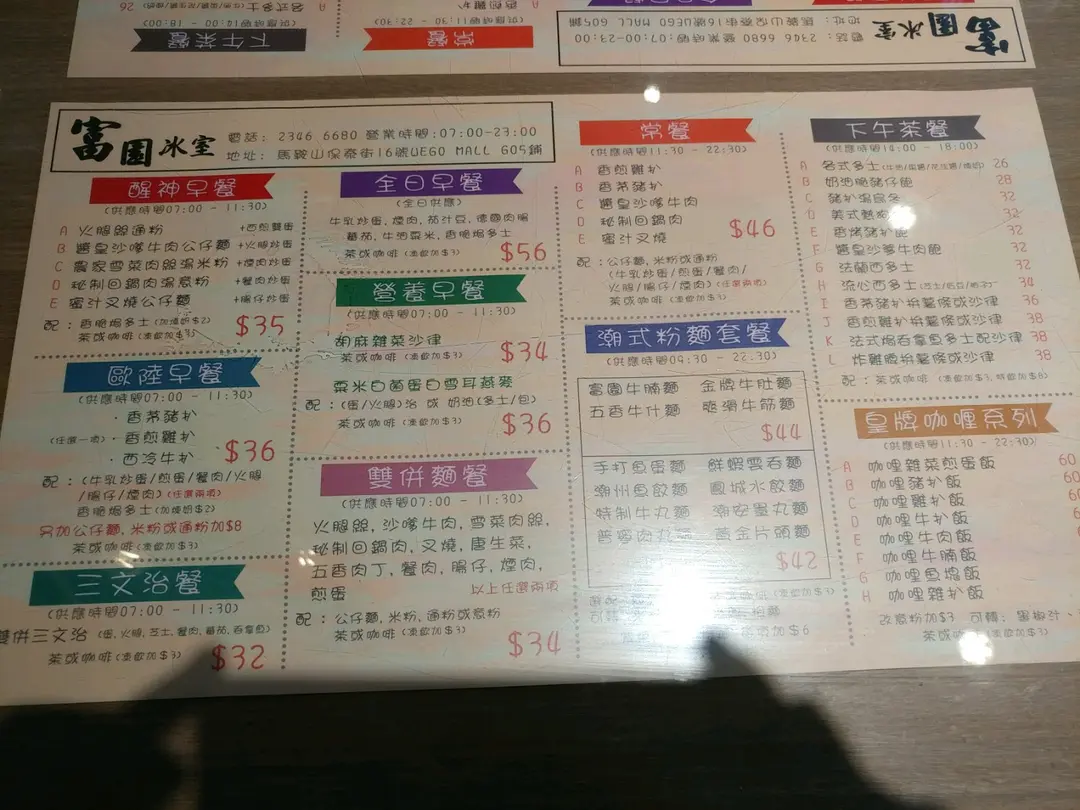 富園冰室
電話: 2346 6680 營業時間:07:00-23:00
地址: 馬鞍山保泰街16號UEGO MALL G05鋪
醒神早餐
(供應時間07:00 - 11:30)
A 火腿絲通粉 +西煎雙蛋
B 醬皇沙嗲牛肉公仔麵 +火腿炒蛋
C 農家雪菜肉絲湯米粉 +煙肉炒蛋
D 秘制回鍋肉湯意粉 +餐肉炒蛋
E 蜜汁叉燒公仔麵 +腸仔炒蛋
配: 香脆焗多士(加燶奶$2)
茶或咖啡(凍飲加$3)
$35
歐陸早餐
(供應時間07:00 - 11:30)
·香茅豬扒
(任選一項)·香煎雞扒
·西冷牛扒
$36
配: (牛乳炒蛋/煎蛋/餐肉/火腿
/腸仔/煙肉)(任選兩項)
香脆焗多士(加燶奶$2)
另加公仔麵,米粉或通粉加$8
茶或咖啡(凍飲加$3)
三文治餐
(供應時間07:00 - 11:30)
雙併三文治(蛋,火腿,芝士,餐肉,蕃茄,吞拿魚)
茶或咖啡(凍飲加$3)
$32
全日早餐
(全日供應)
牛乳炒蛋,煙肉,茄汁豆,德國肉腸
蕃茄,牛油粟米,香脆焗多士
茶或咖啡(凍飲加$3)
$56
營養早餐
(供應時間07:00 - 11:30)
胡麻雜菜沙律
茶或咖啡(凍飲加$3)
$34
粟米白菌蛋白雪耳燕麥
配:(蛋/火腿)治 或 奶油(多士/包)
茶或咖啡(凍飲加$3)
$36
雙併麵餐
(供應時間07:00 - 11:30)
火腿絲,沙嗲牛肉,雪菜肉絲,
秘制回鍋肉,叉燒,唐生菜,
五香肉丁,餐肉,腸仔,煙肉,
煎蛋 以上任選兩項
配: 公仔麵,米粉,通粉或意粉
茶或咖啡(凍飲加$3)
$34
常餐
(供應時間11:30 - 22:30)
A 香煎雞扒
B 香茅豬扒
C 醬皇沙嗲牛肉
D 秘制回鍋肉
E 蜜汁叉燒
$46
配:公仔麵,米粉或通粉
(牛乳炒蛋/煎蛋/餐肉/
火腿/腸仔/煙肉)(任選兩項)
茶或咖啡(凍飲加$3)
潮式粉麵套餐
(供應時間09:30 - 22:30)
富園牛腩麵 金牌牛肚麵
五香牛什麵 脆滑牛筋麵
$44
手打魚蛋麵 鮮蝦雲吞麵
潮州魚餃麵 鳳城水餃麵
特制牛丸麵 潮安墨丸麵
黃金片頭麵
$42
下午茶餐
(供應時間14:00 - 18:00)
A 各式多士 26
B 奶油脆豬仔飽 28
C 豬扒湯烏冬 32
D 美式熱狗 32
E 香烤豬扒飽 32
F 醬皇沙嗲牛肉飽 32
G 法蘭西多士 32
H 流心西多士 34
I 香茅豬扒拼薯條或沙律 36
J 香煎雞扒拼薯條或沙律 38
K 法式焗吞拿魚多士配沙律 38
L 炸雞髀拼薯條或沙律 38
配: 茶或咖啡(凍飲加$3,特飲加$8)
皇牌咖喱系列
(供應時間11:30 - 22:30)
A 咖喱雜菜煎蛋飯 60
B 咖喱豬扒飯 60
C 咖喱雞扒飯
D 咖喱牛扒飯
E 咖喱牛肉飯
F 咖喱牛腩飯
G 咖喱魚塊飯
H 咖喱雜扒飯
改意粉加$3 可轉: 黑椒汁
茶或咖啡(凍飲加$3)